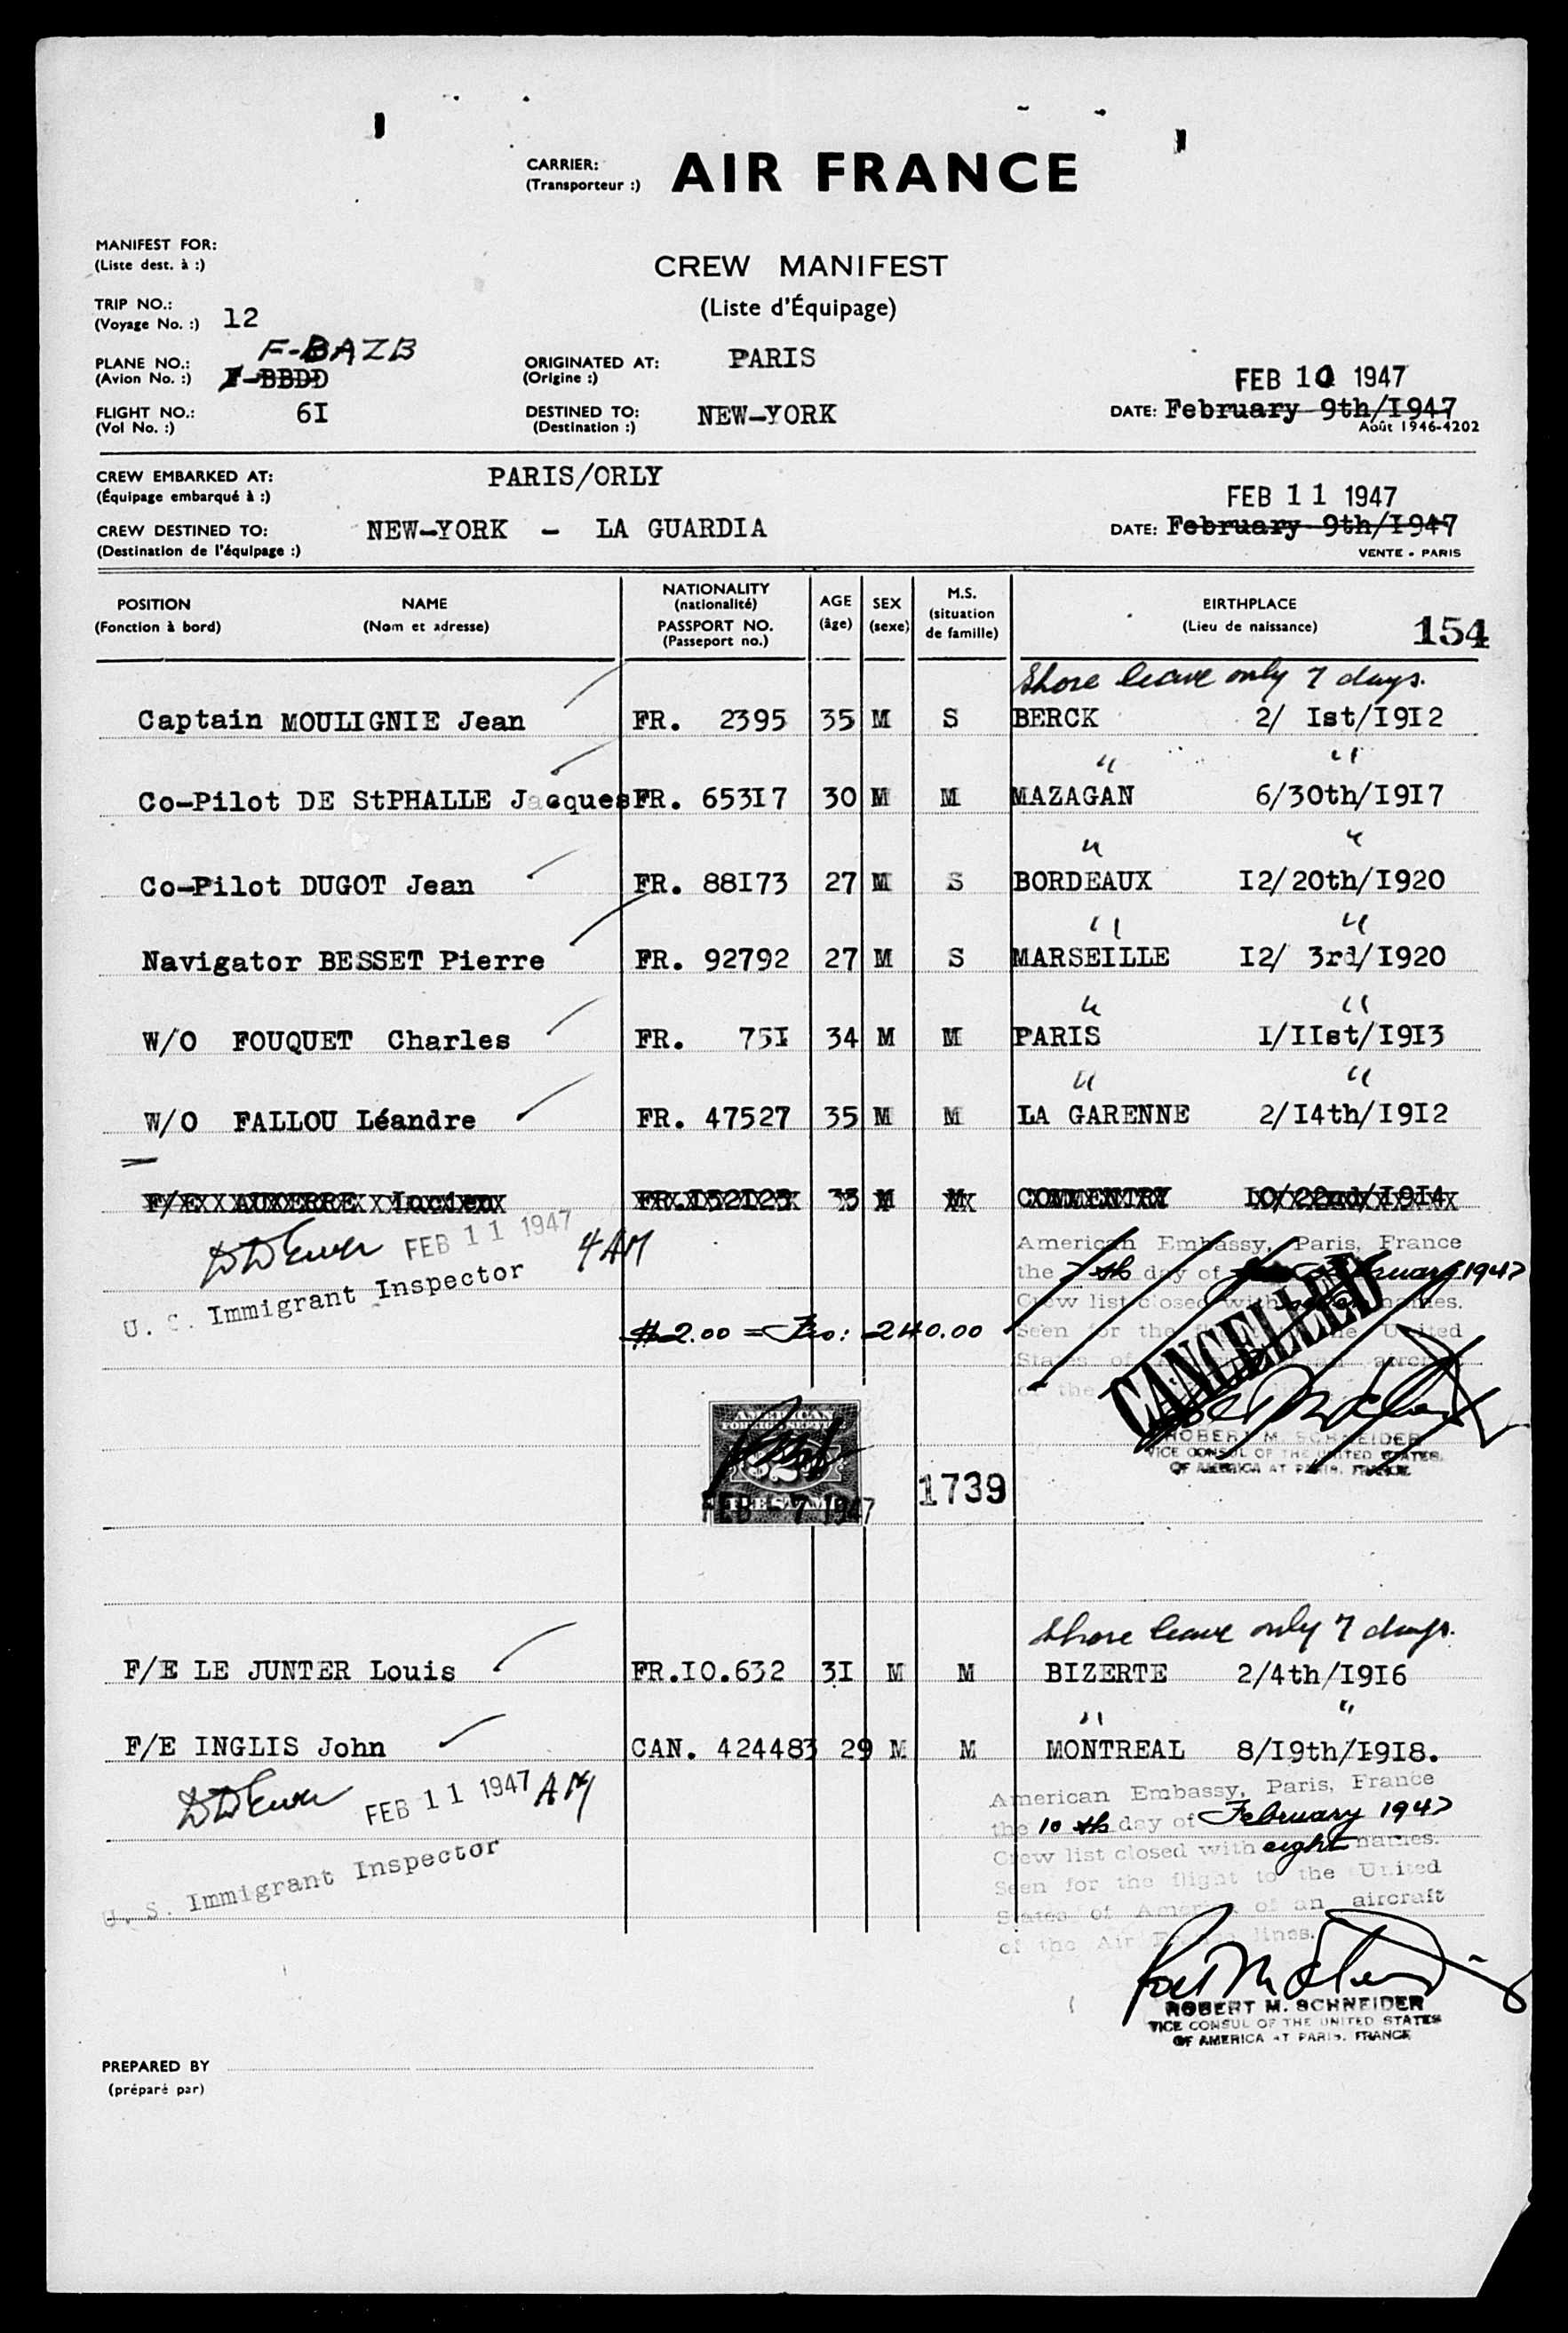 CARRIER:
(Transporteur :)
AIR FRANCE
MANIFEST FOR:
(Liste dest. à :)
CREW MANIFEST
(Liste d'Équipage)
TRIP NO.:
(Voyage No. :) 12
F-BAZB
PLANE NO.:
(Avion No. :) F-BBDD
ORIGINATED AT:
(Origine :) PARIS
FEB 10 1947
FLIGHT NO.:
(Vol No. :) 6I
DESTINED TO:
(Destination :) NEW-YORK
DATE: February 9th/I947
Août 1946-4202
CREW EMBARKED AT:
(Équipage embarqué à :) PARIS/ORLY
FEB 11 1947
CREW DESTINED TO:
(Destination de l'équipage :) NEW-YORK - LA GUARDIA
DATE: February 9th/I947
VENTE - PARIS
POSITION
(Fonction à bord)
NAME
(Nom et adresse)
NATIONALITY
(nationalité)
PASSPORT NO.
(Passeport no.)
AGE
(âge)
SEX
(sexe)
M.S.
(situation
de famille)
BIRTHPLACE
(Lieu de naissance)
154
Shore leave only 7 days.
Captain MOULIGNIE Jean FR. 2395 35 M S BERCK 2/ Ist/I9I2
" "
Co-Pilot DE StPHALLE Jacques FR. 653I7 30 M M MAZAGAN 6/30th/I9I7
" "
Co-Pilot DUGOT Jean FR. 88I73 27 M S BORDEAUX I2/20th/I920
" "
Navigator BESSET Pierre FR. 92792 27 M S MARSEILLE I2/ 3rd/I920
" "
W/O FOUQUET Charles FR. 75I 34 M M PARIS I/IIst/I9I3
" "
W/O FALLOU Léandre FR. 47527 35 M M LA GARENNE 2/I4th/I9I2
F/E AUXERRE Lucien FR.I52I23 33 M M COMMENTRY I0/22nd/I9I4
FEB 11 1947 4 AM
U. S. Immigrant Inspector
American Embassy, Paris, France
the 7 th day of February 1947
Crew list closed with names.
Seen for the flight to the United
States of aircraft
of the
CANCELLED
$2.00 = Frs: 240.00
ROBERT M. SCHNEIDER
VICE CONSUL OF THE UNITED STATES
OF AMERICA AT PARIS, FRANCE
AMERICAN
FOREIGN SERVICE
$2
FEE STAMP
FEB - 7 1947
1739
Shore leave only 7 days.
F/E LE JUNTER Louis FR.I0.632 3I M M BIZERTE 2/4th/I9I6
" "
F/E INGLIS John CAN. 424483 29 M M MONTREAL 8/I9th/I9I8.
FEB 11 1947 AM
U. S. Immigrant Inspector
American Embassy, Paris, France
the 10 th day of February 1947
Crew list closed with eight names.
Seen for the flight to the United
States of America of an aircraft
of the Air France lines.
ROBERT M. SCHNEIDER
VICE CONSUL OF THE UNITED STATES
OF AMERICA AT PARIS, FRANCE
PREPARED BY
(préparé par)